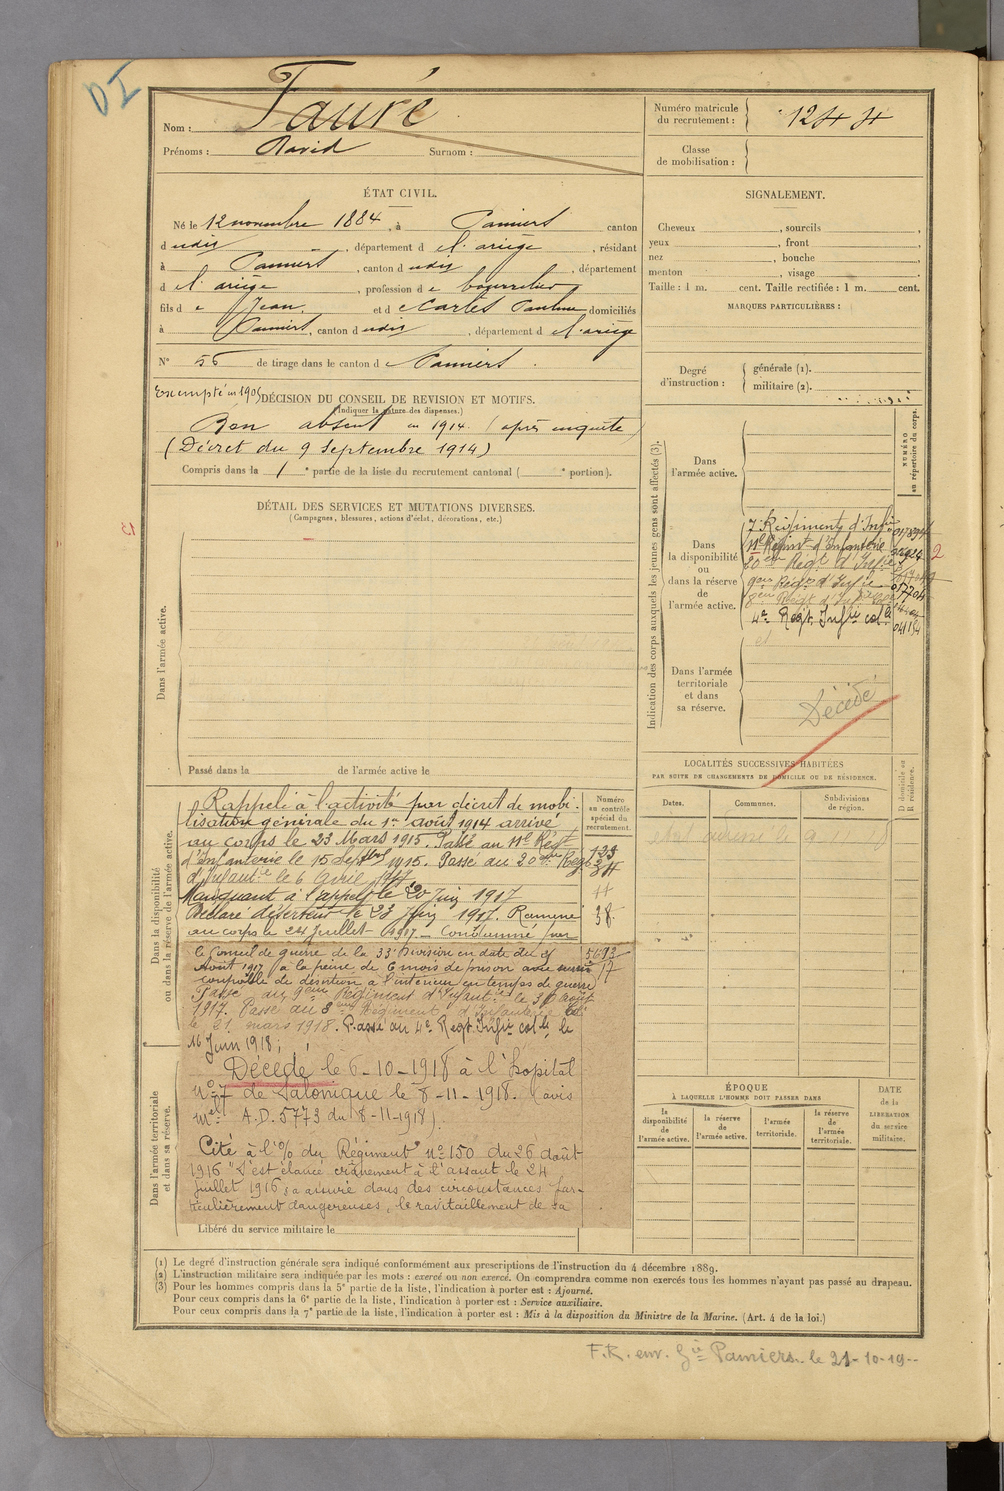 DI
Nom : Fauré
Prénoms : David Surnom :
Numéro matricule du recrutement : 1244
Classe de mobilisation :
ÉTAT CIVIL.
Né le 12 novembre 1884, à Pamiers canton
d udis, département d e l'ariège, résidant
à Pamiers, canton d udis, département
d e l'ariège, profession d e bourrelier
fils d e Jean, et d e Cartès Pauline domiciliés
à Pamiers, canton d udis, département d e l'ariège
N° 56 de tirage dans le canton d e Pamiers.
SIGNALEMENT.
Cheveux , sourcils ,
yeux , front ,
nez , bouche ,
menton , visage ,
Taille : 1 m. cent. Taille rectifiée : 1 m. cent.
MARQUES PARTICULIÈRES :
Degré d'instruction : générale (1).
militaire (2).
Exempté en 1905 DÉCISION DU CONSEIL DE REVISION ET MOTIFS.
(Indiquer la nature des dispenses.)
Bon absent en 1914 (après enquête)
(Décret du 9 Septembre 1914)
Compris dans la 1e partie de la liste du recrutement cantonal ( e portion).
DÉTAIL DES SERVICES ET MUTATIONS DIVERSES.
(Campagnes, blessures, actions d'éclat, décorations, etc.)
13
Dans l'armée active.
Passé dans la de l'armée active le
Indication des corps auxquels les jeunes gens sont affectés (3).
NUMÉRO au répertoire du corps.
Dans l'armée active.
Dans la disponibilité ou dans la réserve de l'armée active.
7e Régiment d'Infie
11e Régimt d'Infanterie
20ème Régt d'Infie
9ème Régt d'Infie
8ème Régt d'Infie
4e Regt Infie colle
041154
2
Dans l'armée territoriale et dans sa réserve.
Décédé
LOCALITÉS SUCCESSIVES HABITÉES
PAR SUITE DE CHANGEMENTS DE DOMICILE OU DE RÉSIDENCE.
Dates. Communes. Subdivisions de région. D domicile ou R résidence.
Dans la disponibilité ou dans la réserve de l'armée active.
Numéro au contrôle spécial du recrutement.
Rappelé à l'activité par décret de mobi-
lisation générale du 1er août 1914 arrivé
au corps le 23 Mars 1915. Passé au 11e Régt
d'Infanterie le 15 Septbre 1915. Passé au 20ème Régt
d'Infantie le 6 Avril 1917
Manquant à l'appel le 20 Juin 1917
Déclaré déserteur le 23 Juin 1917. Ramené
38
au corps le 24 Juillet 1917 - Condamné par
le Conseil de guerre de la 33e Division en date du 8
Août 1917 à la peine de 6 mois de prison avec sursis
coupable de désertion à l'intérieur en temps de guerre
Passé au 9ème Régiment d'Infantie le 30 août
1917. Passé au 8ème Régiment d'Infanterie Colle
le 21 mars 1918. Passé au 4e Regt Infie colle le
16 Juin 1918.
Décédé le 6-10-1918 à l'hopital
n° 7 de Salonique le 8-11-1918. (avis
Mel A.D. 5773 du 8-11-1918).
Cité à l'% du Régiment n° 150 du 26 août
1916 "S'est élancé crânement à l'assaut le 24
Juillet 1916, a assuré dans des circonstances par-
ticulièrement dangereuses, le ravitaillement de sa
Dans l'armée territoriale et dans sa réserve.
Libéré du service militaire le
ÉPOQUE
À LAQUELLE L'HOMME DOIT PASSER DANS
la disponibilité de l'armée active. la réserve de l'armée active. l'armée territoriale. la réserve de l'armée territoriale.
DATE de la LIBÉRATION du service militaire.
(1) Le degré d'instruction générale sera indiqué conformément aux prescriptions de l'instruction du 4 décembre 1889.
(2) L'instruction militaire sera indiquée par les mots : exercé ou non exercé. On comprendra comme non exercés tous les hommes n'ayant pas passé au drapeau.
(3) Pour les hommes compris dans la 5e partie de la liste, l'indication à porter est : Ajourné.
Pour ceux compris dans la 6e partie de la liste, l'indication à porter est : Service auxiliaire.
Pour ceux compris dans la 7e partie de la liste, l'indication à porter est : Mis à la disposition du Ministre de la Marine. (Art. 4 de la loi.)
F.R. env. Gie Pamiers le 21-10-19